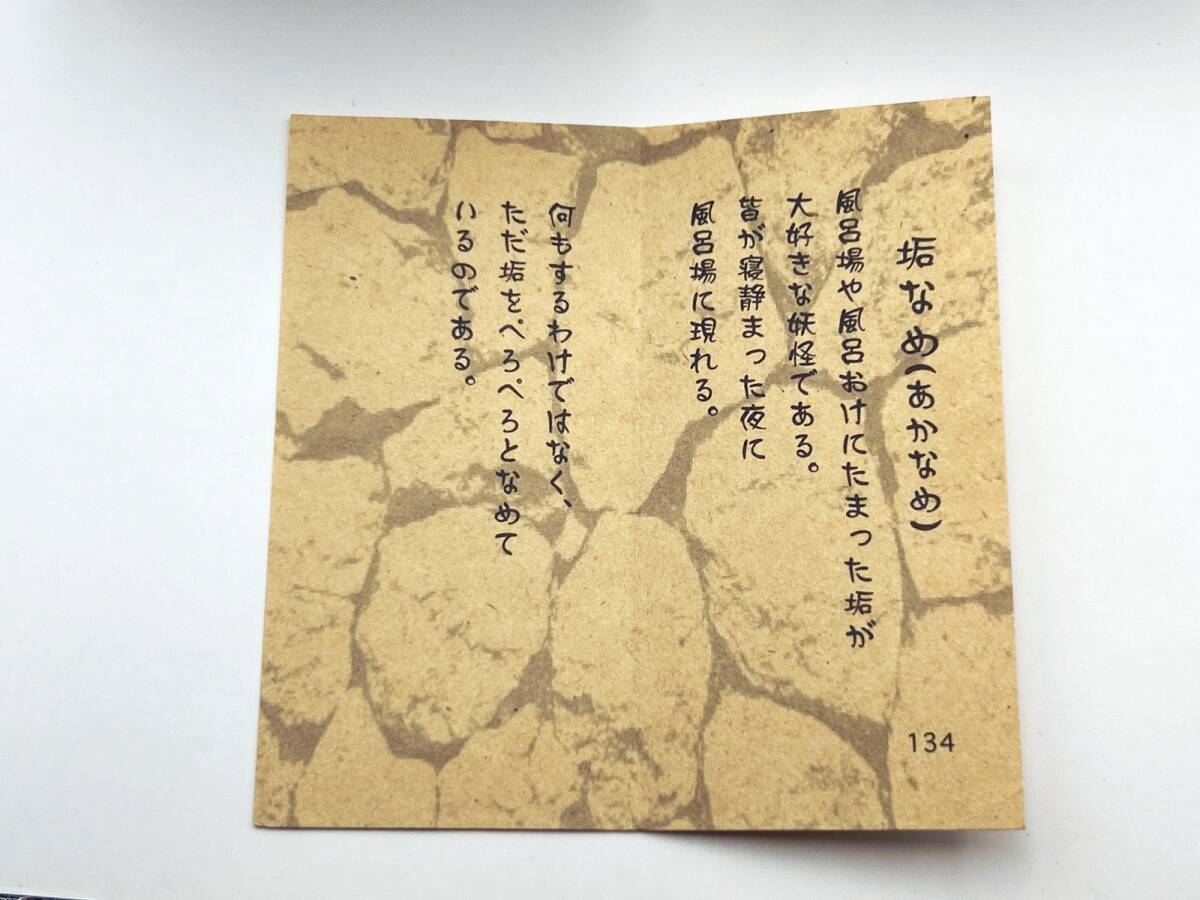 垢なめ(あかなめ)
風呂場や風呂おけにたまった垢が
大好きな妖怪である。
皆が寝静まった夜に
風呂場に現れる。
何もするわけではなく、
ただ垢をぺろぺろとなめて
いるのである。
134